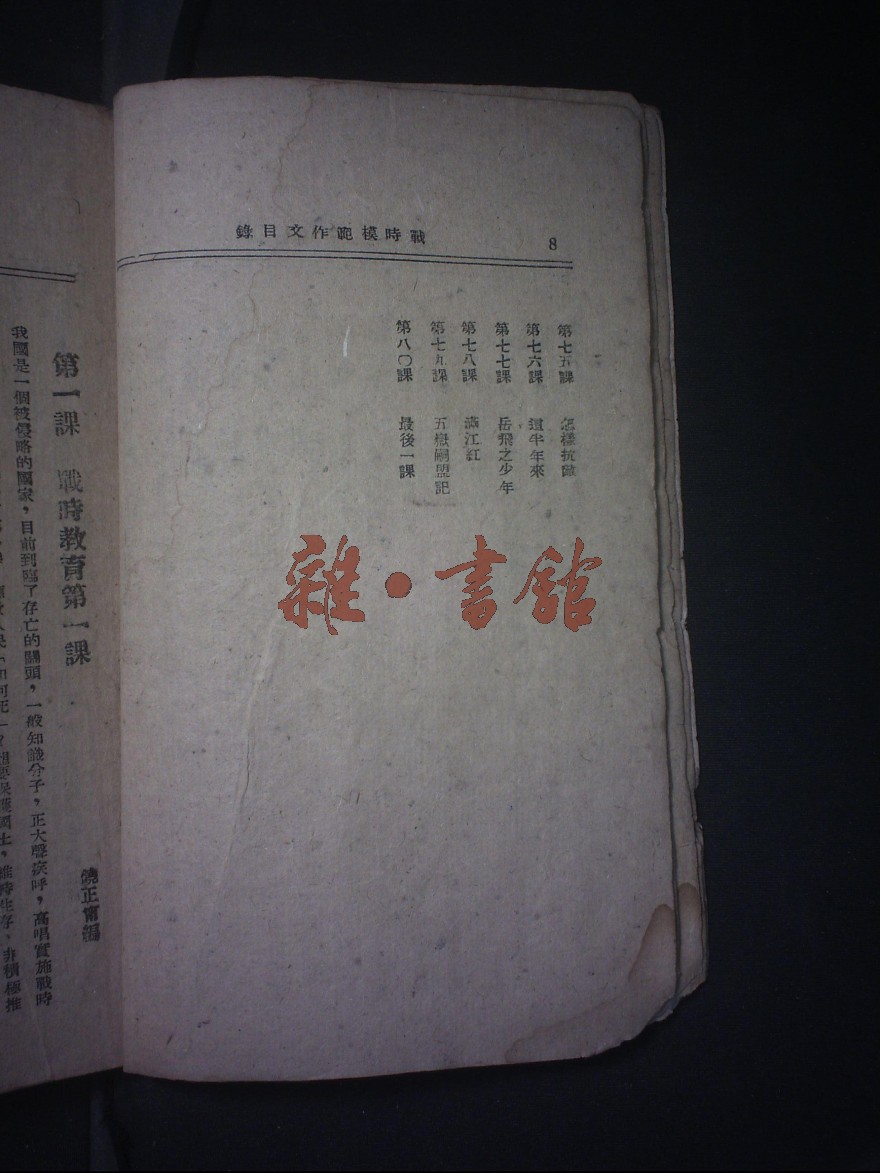 戰時模範作文目錄
8
第七五課 怎樣抗敵
第七六課 這半年來
第七七課 岳飛之少年
第七八課 滿江紅
第七九課 五嶽祠盟記
第八〇課 最後一課
雜・書館
第一課 戰時教育第一課
正甯編
我國是一個被侵略的國家，目前到臨了存亡的關頭，一般知識分子，正大聲疾呼，高唱實施戰時